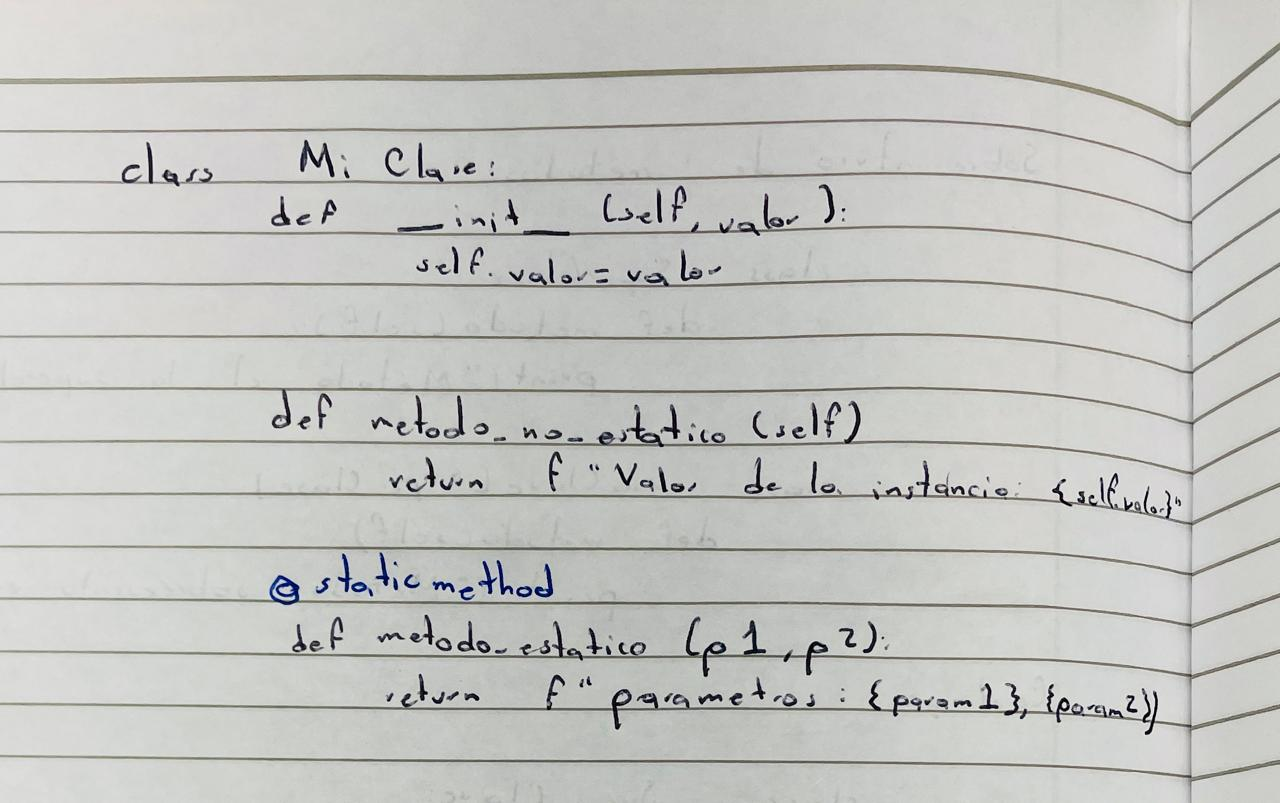 class Mi Clase:
def __init__ (self, valor):
self.valor = valor
def metodo_no_estatico (self)
return f "Valor de la instancia: {self.valor}"
@staticmethod
def metodo_estatico (p1, p2):
return f "parametros: {param1}, {param2})